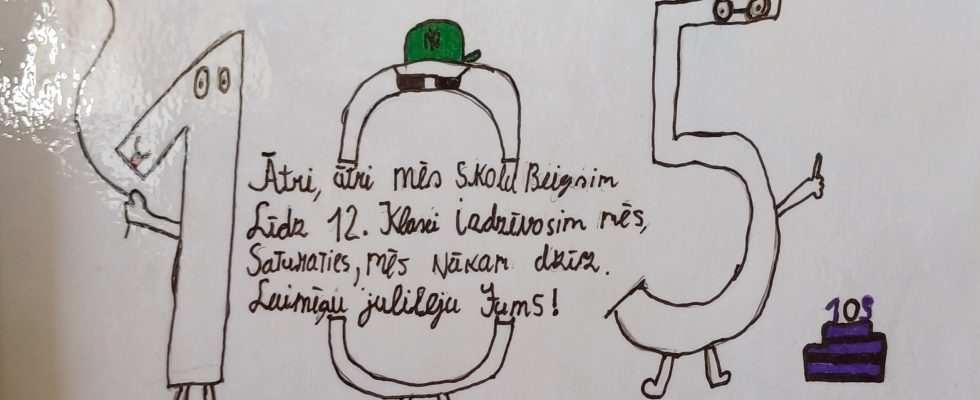 105
NY
Ātri, ātri mēs Skolu Beigsim
Līdz 12. Klasei izdzīvosim mēs,
Saturaties, mēs Nākam
Laimīgu jubileju Jums!
105